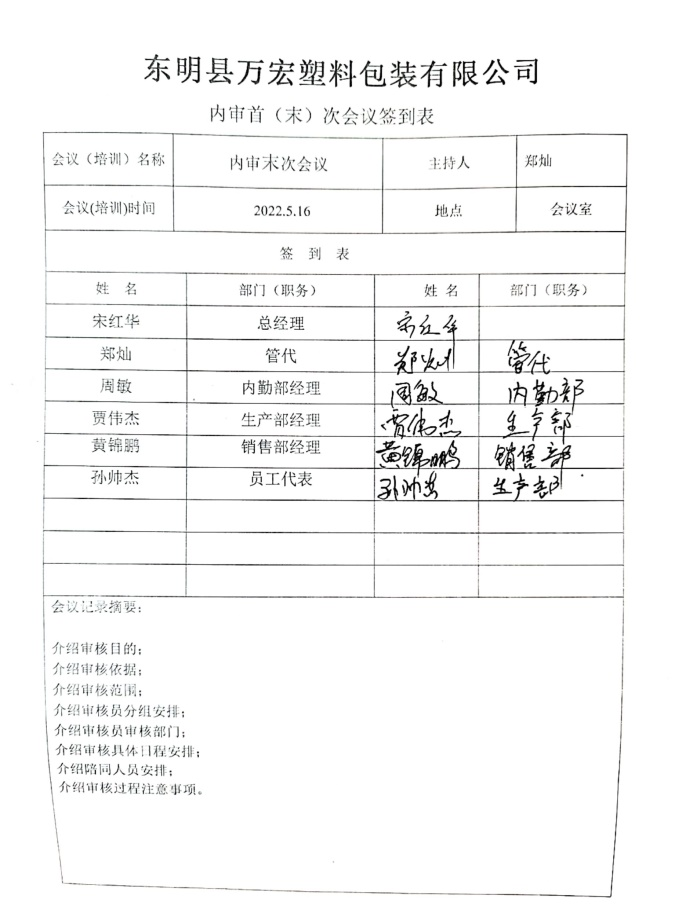 东明县万宏塑料包装有限公司
内审首（末）次会议签到表
会议（培训）名称 内审末次会议 主持人 郑灿
会议(培训)时间 2022.5.16 地点 会议室
签 到 表
姓 名 部门（职务） 姓 名 部门（职务）
宋红华 总经理 宋红华
郑灿 管代 郑灿 管代
周敏 内勤部经理 周敏 内勤部
贾伟杰 生产部经理 贾伟杰 生产部
黄锦鹏 销售部经理 黄锦鹏 销售部
孙帅杰 员工代表 孙帅杰 生产部
会议记录摘要：
介绍审核目的；
介绍审核依据；
介绍审核范围；
介绍审核员分组安排；
介绍审核员审核部门；
介绍审核具体日程安排；
介绍陪同人员安排；
介绍审核过程注意事项。